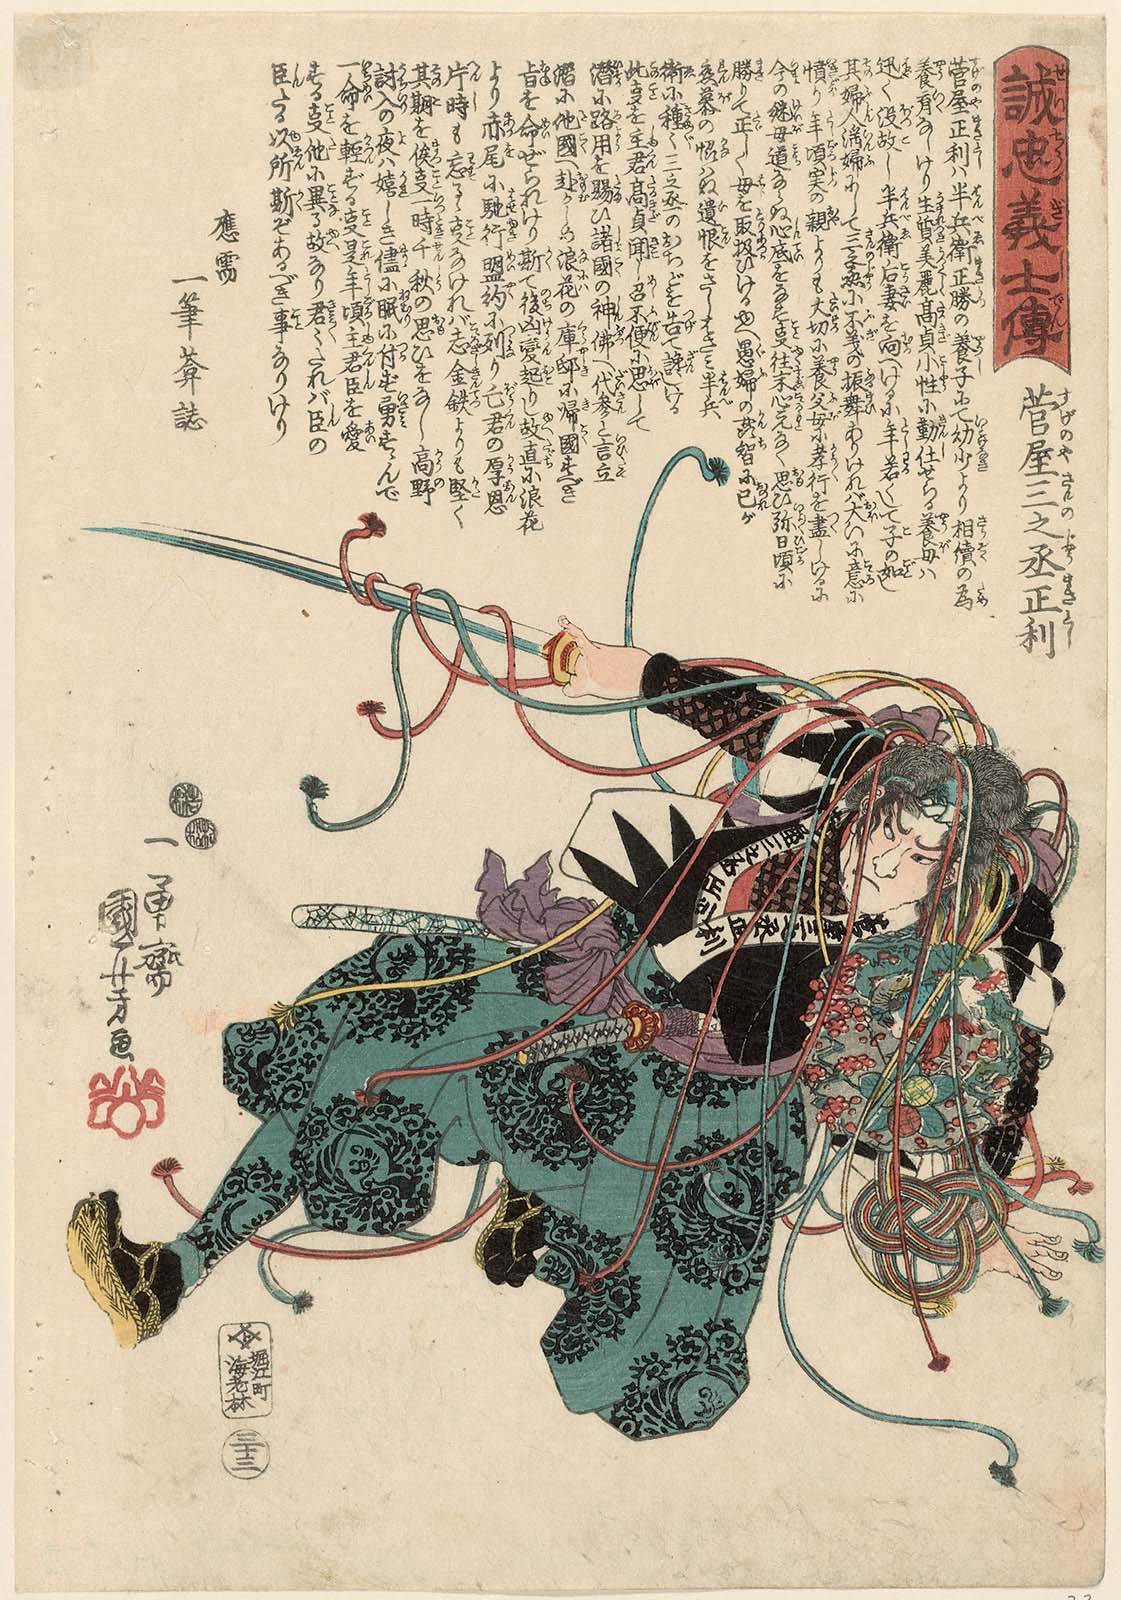 誠忠義士傳
せいちうぎしでん
菅屋三之丞正利
すげのやさんのじやうまさとし
菅屋正利ハ半兵衛正勝の養子にて幼少より相續の為
養育なしけり生質美麗高貞小性に勤仕せる養母ハ
迅く没故し半兵衛后妻を向へけるに年若くして子の如し
其婦人淫婦にして三之丞に不義の振舞ありけれバ大ひに意に
憤り年頃実の親よりも大切に養父母に孝行を盡しけるに
今の継母道ならぬ心底をなす支往末心元なく思ひ弥日頃に
勝りて正しく母を取扱ひける也愚婦の蒙智に已が
恋慕の恨はぬ遺恨をさしはさミ半兵
衛に種々三之丞のおちどを告て讒しける
此支を主君高貞聞し召不便に思して
潜に路用を賜ひ諸國の神佛へ代参と言立
潜に他國へ赴かしめ浪花の庫邸に帰國すべき
旨を命ぜられけり斯て後凶変起りし故直に浪花
より赤尾に馳行盟約に列り亡君の厚恩
片時も忘るゝ支なけれバ志金鉄よりも堅く
其期を俟支一時千秋の思ひをなし高野
討入の夜ハ嬉しき儘に眠に付ず勇すゝんで
一命を軽ずる支是年頃主君臣を愛
する支他に異る故なり君々たれバ臣の
臣たる以所斯ぞあるべき事なりけり
應需
一筆菴誌
一勇齋
國芳画
堀江町
海老林
三十三